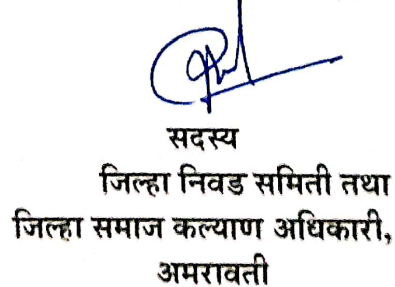 सदस्य
जिल्हा निवड समिती तथा
जिल्हा समाज कल्याण अधिकारी,
अमरावती